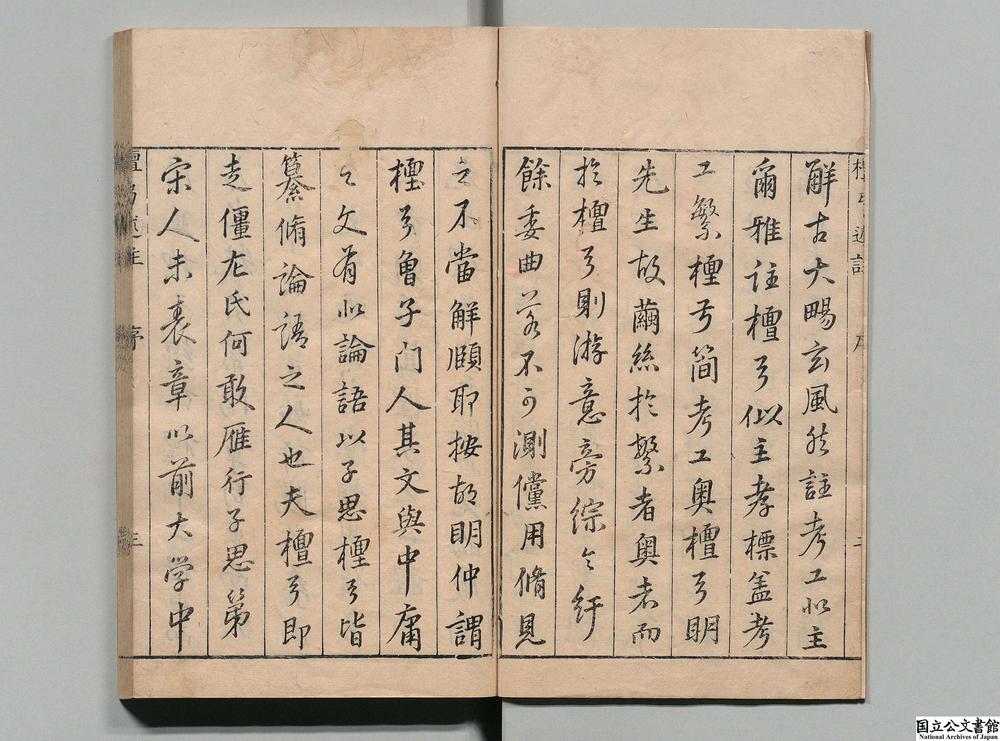 解古大暢玄風然註考工似主
爾雅註檀弓似主孝標盖考
工繁檀弓簡考工奥檀弓明
先生故繭絲於繁者奥者而
於檀弓則游意旁綜令紆
餘委曲若不可測儻用脩見
之不當解頤耶按胡明仲謂
檀弓曾子门人其文與中庸
之文有似論語以子思檀弓皆
纂脩論語之人也夫檀弓即
走僵左氏何敢雁行子思第
宋人未表章以前大学中
檀弓述註 序 三
国立公文書館
National Archives of Japan